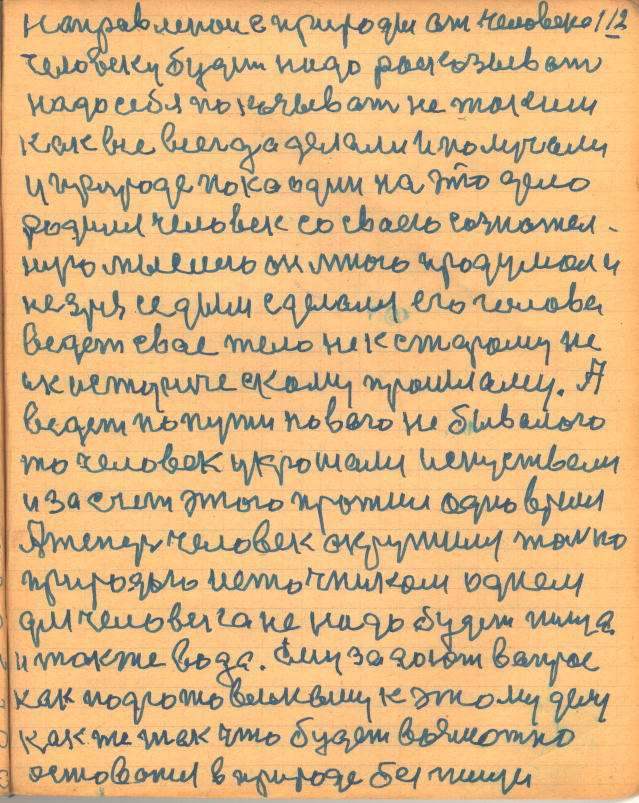 направленои с природи от человека 112
человеку будит надо россказиват
надо себя показыват не только
как вне всегда делали и получали
и природе пока один на это дело
родил человек со своего сознател-
нуго мыслию он много продумал и
не зря се дили сделали его голова
ведет свае тело не к старому не
и к историческому прошламу. А
ведет по пути новаго не бывалого
то человек украшали искуствели
и за счет этого прожил одно время
А тепер человек окружили толко
природью источником однем
для человека не надо будет пища
и также вода. Ему задают вапрос
как подготовленому к этому делу
как же так что будет возможно
оставатся в природе без пищи